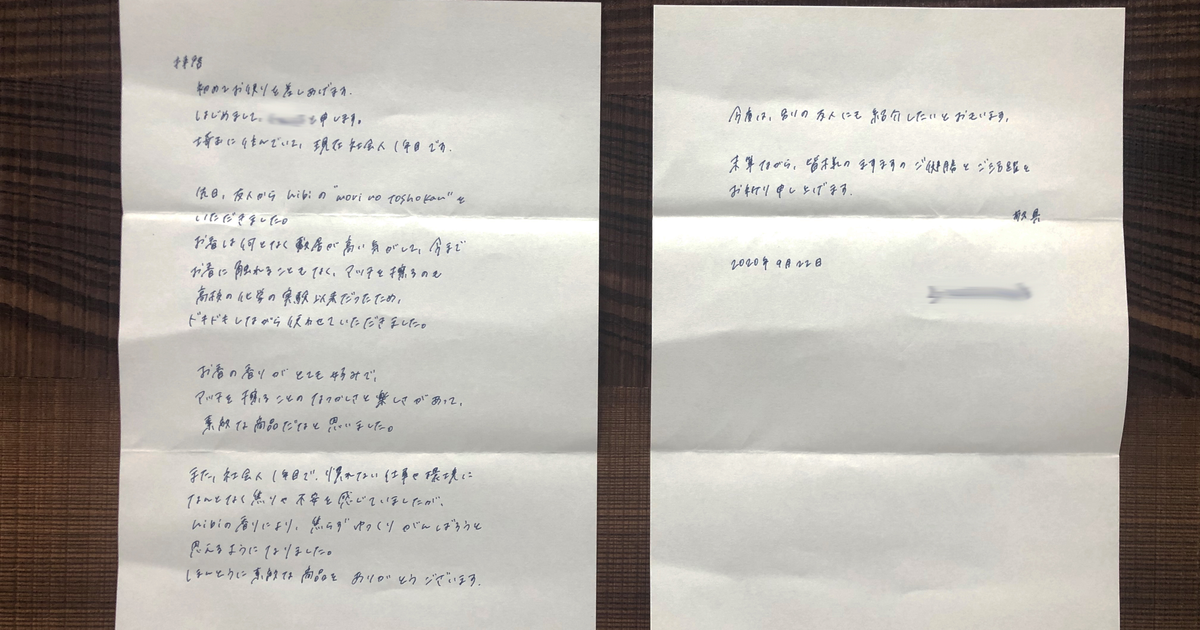 拝啓
初めてお便りを差しあげます。
はじめまして、と申します。
埼玉に住んでいて、現在社会人1年目です。
先日、友人からhibiの"mori no toshokan"を
いただきました。
お香は何となく敷居が高い気がして、今まで
お香に触れることもなく、マッチを擦るのも
高校の化学の実験以来だったため、
ドキドキしながら使わせていただきました。
お香の香りがとても好みで、
マッチを擦ることのなつかしさと楽しさがあって、
素敵な商品だなと思いました。
また、社会人1年目で、慣れない仕事や環境に
なんとなく焦りや不安を感じていましたが、
hibiの香りにより、焦らずゆっくりがんばろうと
思えるようになりました。
ほんとうに素敵な商品をありがとうございます。
今度は、別の友人にも紹介したいとおもいます。
末筆ながら、皆様のますますのご健勝とご活躍を
お祈り申し上げます。
敬具
2020年9月22日